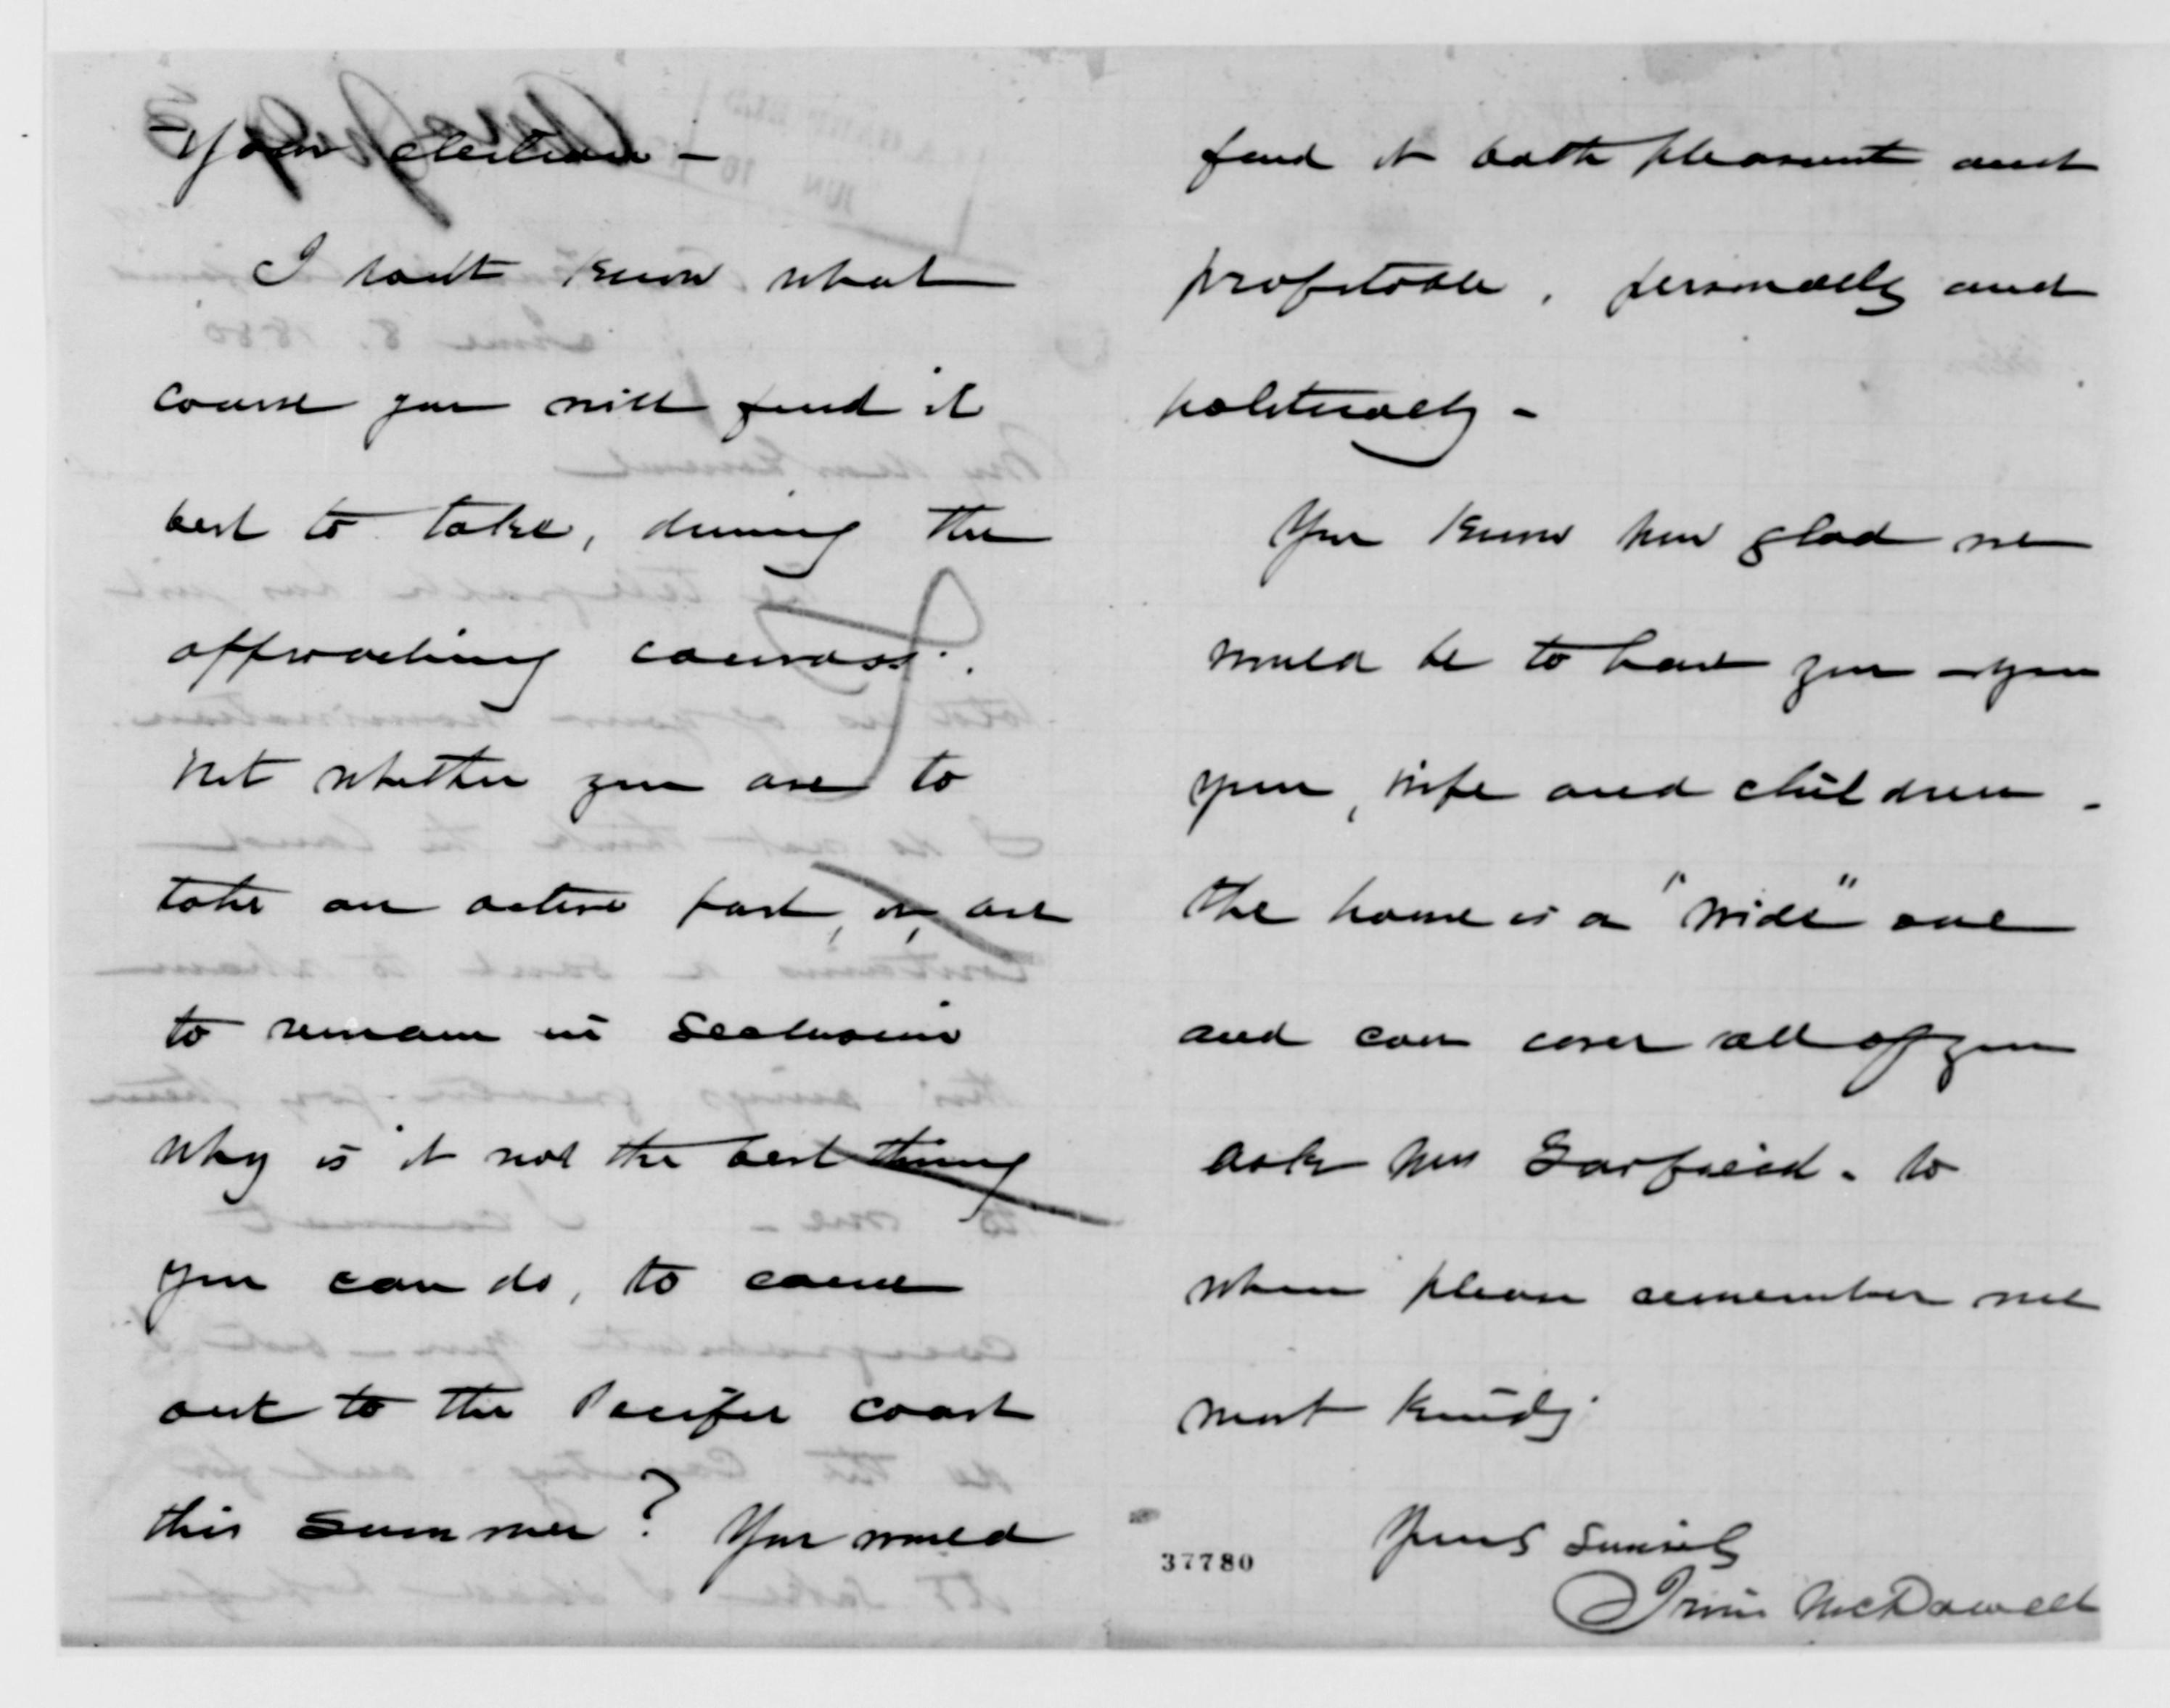 your election -
I don't know what
course you will find it
best to take, during the
approaching canvass.
Not whether you are to
take an active part, or, are
to remain in seclusion
why is it not the best thing
you can do, to come
out to the Pacific coast
this summer? You would
find it both pleasant and
profitable, personally and
politically -
You know how glad we
would be to have you - you
your, wife and children -
The house is a "wide" one
and can cover all of you
ask Mrs Garfield - to
whom please remember me
most kindly
Yours sincerely
Irvin McDowell
37780